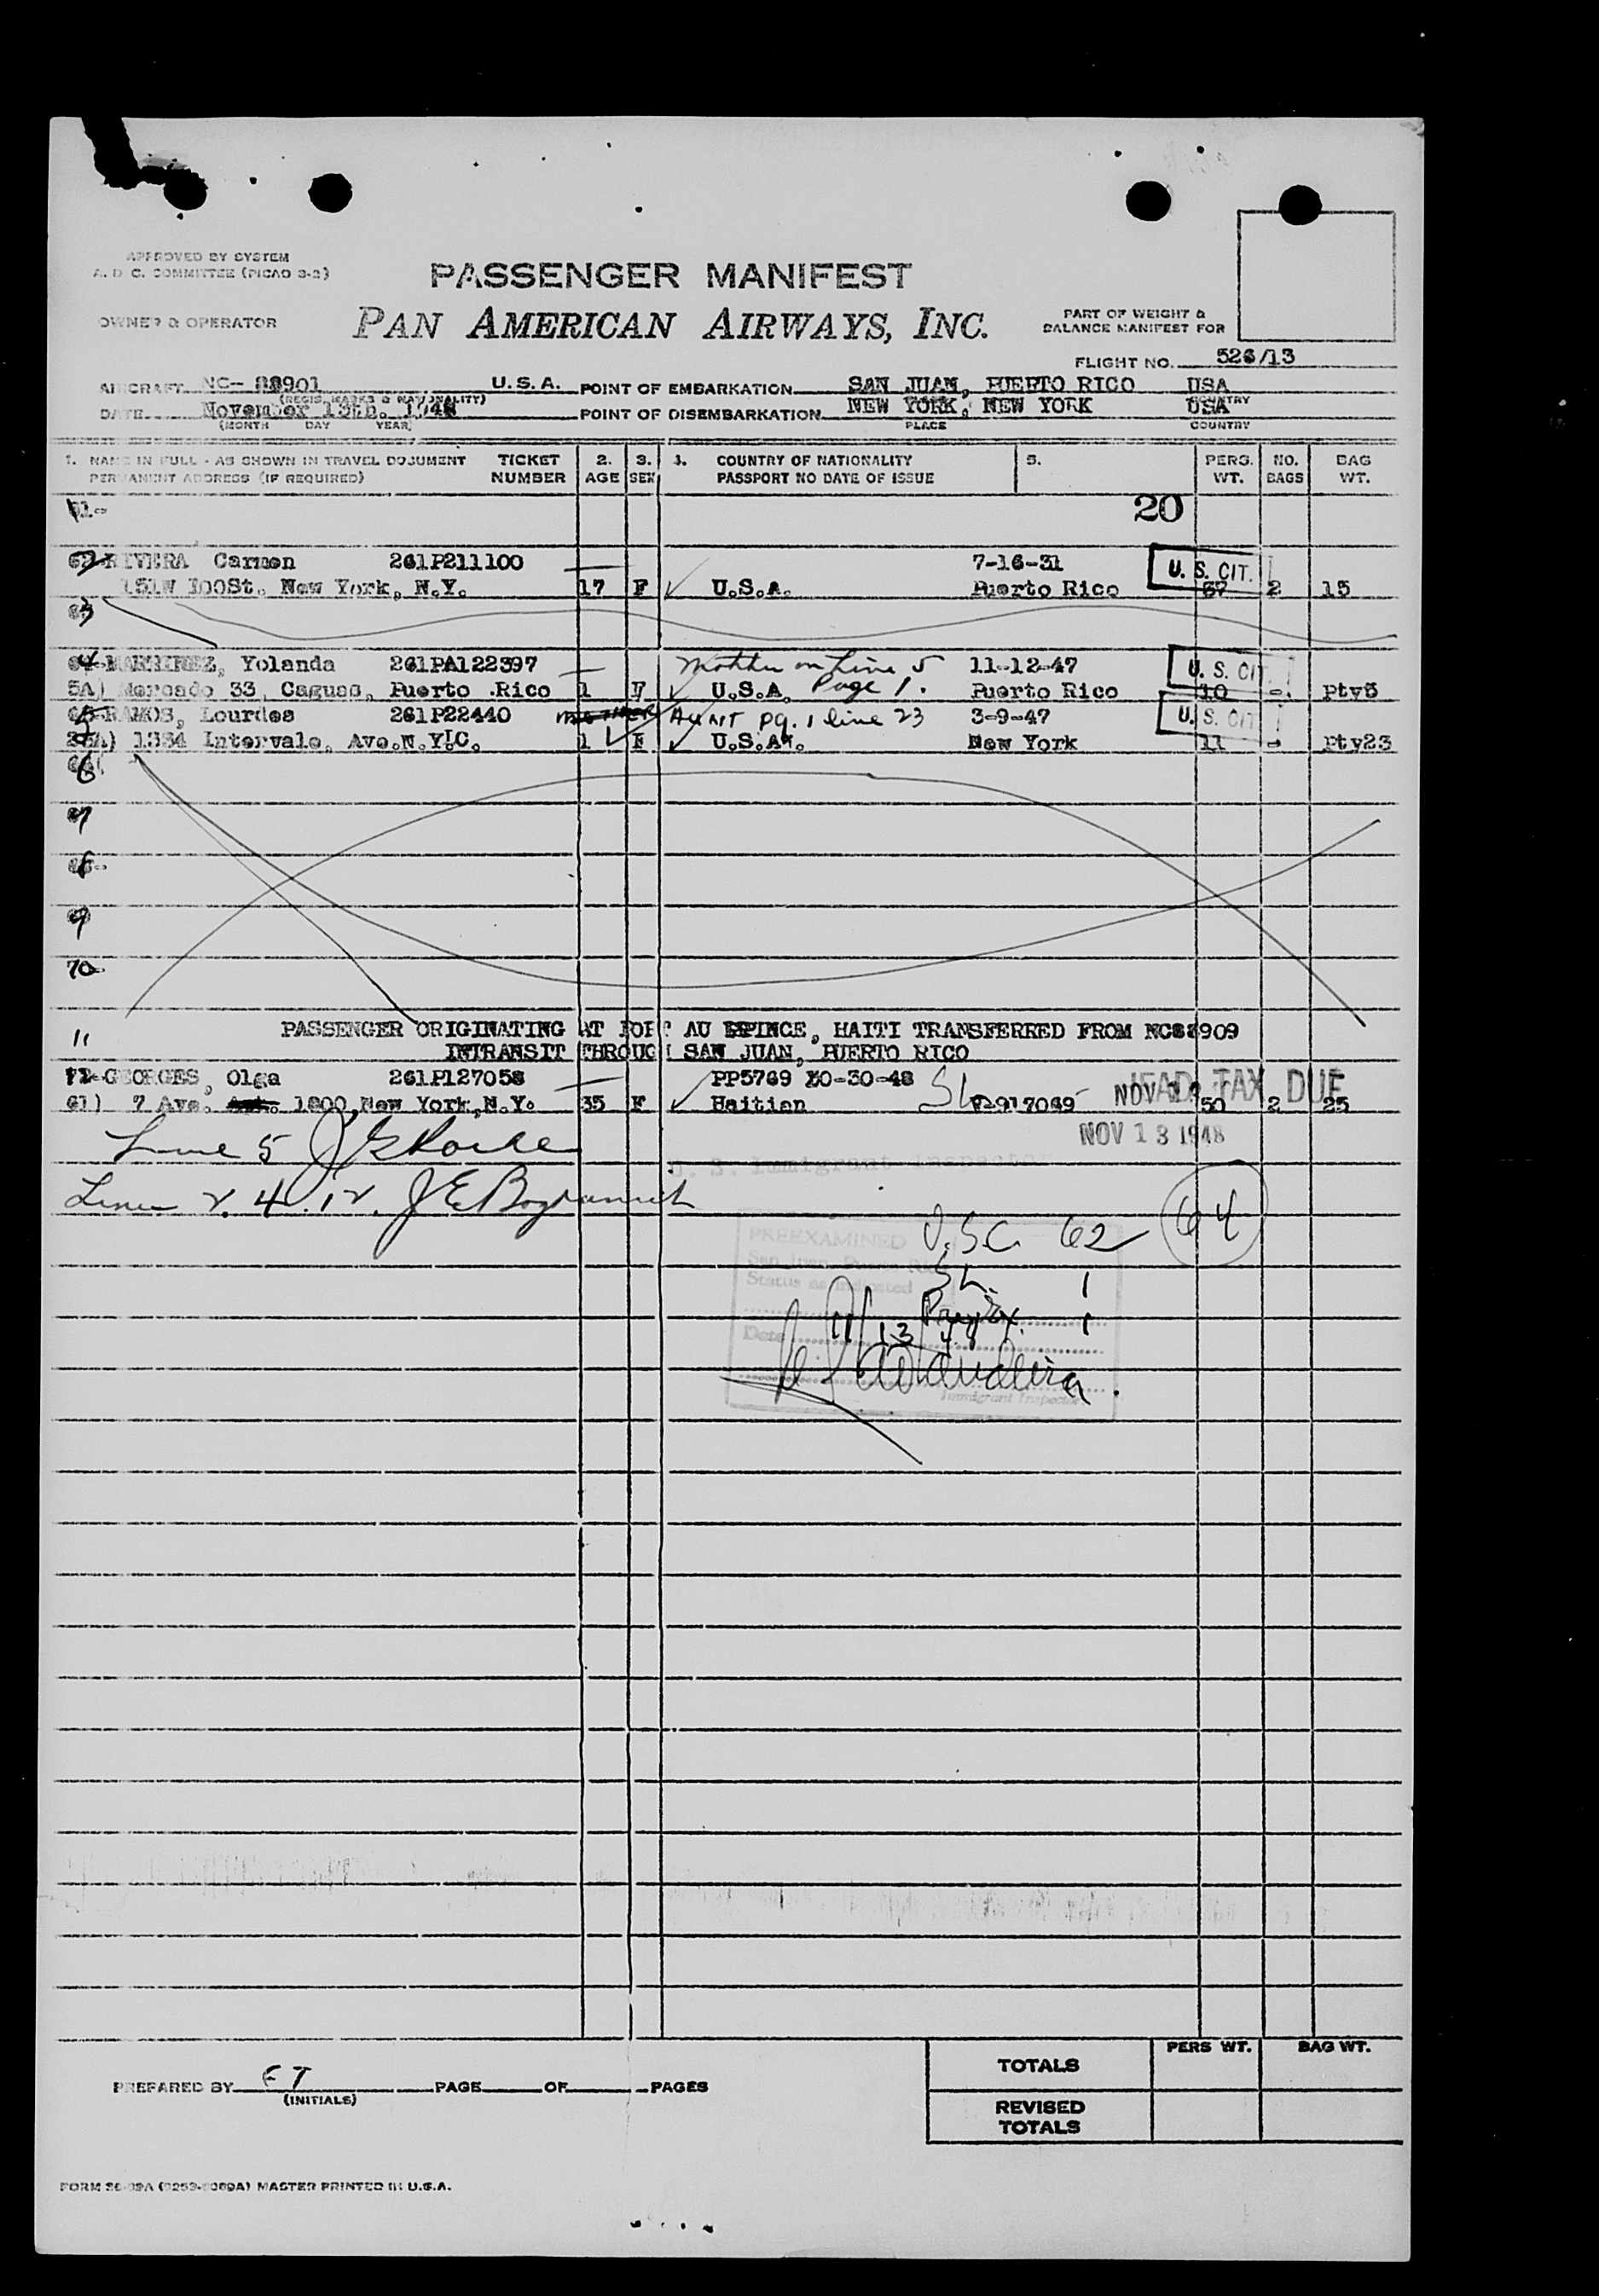 APPROVED BY SYSTEM
A. D C. COMMITTEE (PICAO 3-2)
PASSENGER MANIFEST
OWNER & OPERATOR
PAN AMERICAN AIRWAYS, INC.
PART OF WEIGHT &
BALANCE MANIFEST FOR
FLIGHT NO. 526/13
AIRCRAFT NC-88901 U.S.A. POINT OF EMBARKATION SAN JUAN, PUERTO RICO USA
(REGIS. MARKS & NATIONALITY) COUNTRY
DATE November 13th. 1948 POINT OF DISEMBARKATION NEW YORK, NEW YORK USA
(MONTH DAY YEAR) PLACE COUNTRY
1. NAME IN FULL - AS SHOWN IN TRAVEL DOCUMENT TICKET 2. 3. 4. COUNTRY OF NATIONALITY 5. PERS. NO. BAG
PERMANENT ADDRESS (IF REQUIRED) NUMBER AGE SEX PASSPORT NO DATE OF ISSUE WT. BAGS WT.
20
RIVERA Carmen 261P211100 7-16-31 U.S. CIT.
151W 100St. New York, N.Y. 17 F U.S.A. Puerto Rico 2 15
3
4 Yolanda 261PA122397 Mother on Line 5 11-12-47 U.S. CIT.
5A) Mercado 33, Caguas, Puerto Rico 1 F U.S.A. Page 1. Puerto Rico 10 - pty5
5 RAMOS, Lourdes 261P22440 Aunt pg. 1 line 23 3-9-47 U.S. CIT
1334 Intervale, Ave. 1 F New York 11 - pty23
6
7
8
9
70
11 PASSENGER ORIGINATING AT PORT AU , HAITI TRANSFERRED FROM NC88909
INTRANSIT THROUGH SAN JUAN, PUERTO RICO
GEORGES, Olga 261P127058 PP5769 10-30-48 SL HEAD TAX DUE
61) 7 Ave. 1800, New York, N.Y. 35 F Haitian V-917069 50 2 25
NOV 13 1948
Line 5
U. S. Immigrant Inspector
Lines 2. 4. 12. J E
U.S.C. 62 64
PREEXAMINED
San Juan, Puerto Rico
Status as indicated
SL. 1
1
Date 11 13 48
Immigrant Inspector
PREPARED BY ET PAGE OF PAGES
(INITIALS)
TOTALS PERS WT. BAG WT.
REVISED
TOTALS
MASTER PRINTED IN U.S.A.